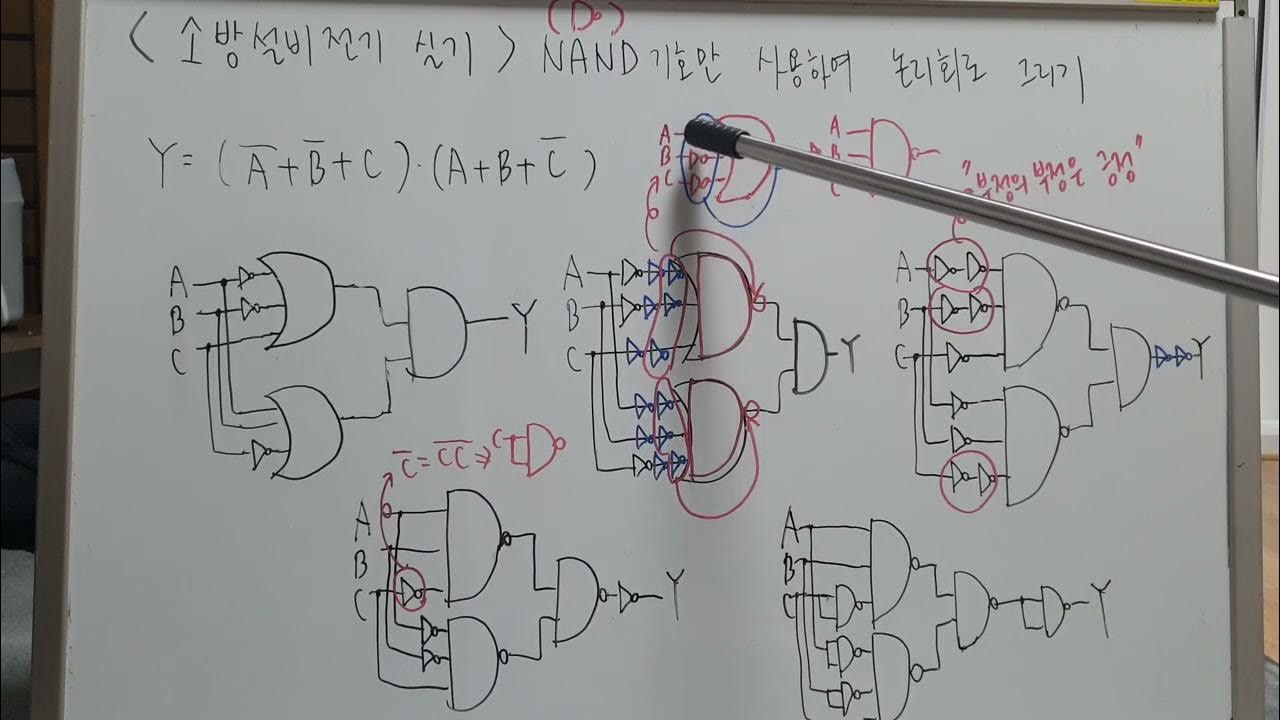 (D०)
< 소방설비전기 실기 > NAND기호만 사용하여 논리회로 그리기
Y = (A̅+B̅+C)·(A+B+C̅)
A
B
C
A
B
C
"부정의 부정은 긍정"
A
B
C
Y
A
B
C
Y
A
B
C
Y
C̅ = C̅C̅ ⇒ C
A
B
C
Y
A
B
C
Y